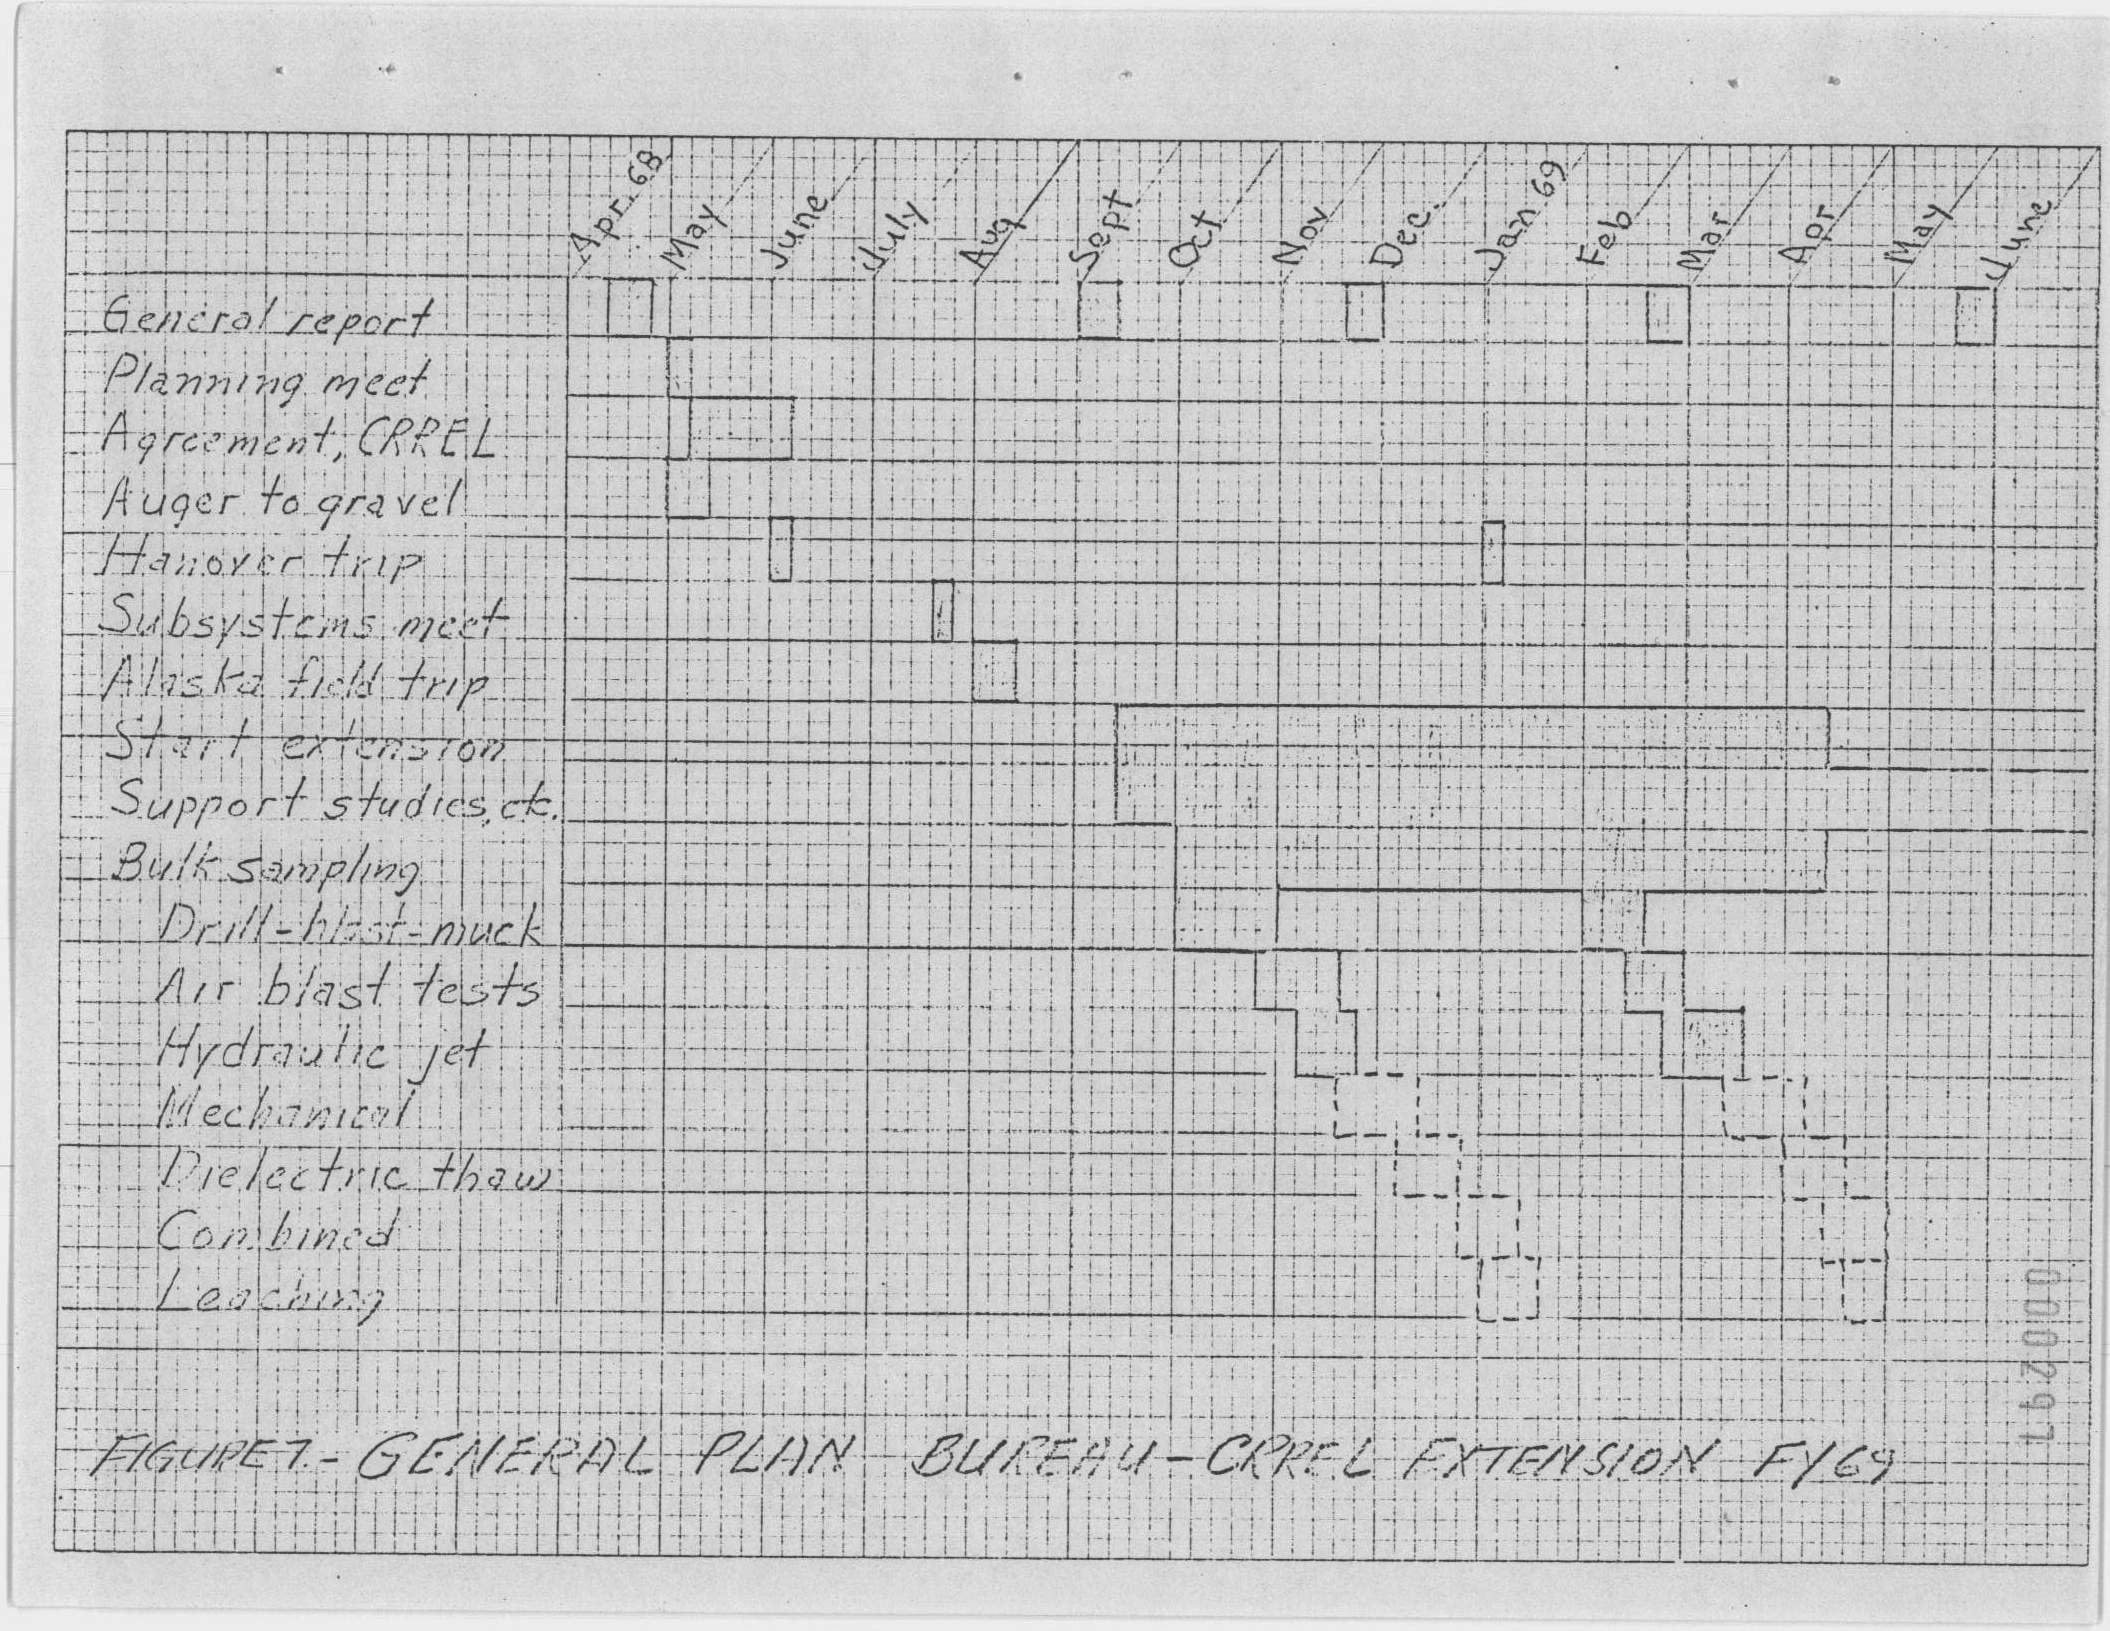 Apr. 68 May June July Aug Sept Oct Nov Dec. Jan 69 Feb Mar Apr May June
General report
Planning meet
Agreement, CRREL
Auger to gravel
Hanover trip
Subsystems meet
Alaska field trip
Start extension
Support studies, etc.
Bulk sampling
Drill-blast-muck
Air blast tests
Hydraulic jet
Mechanical
Dielectric thaw
Combined
Leaching
000297
FIGURE 7.- GENERAL PLAN BUREAU-CRREL EXTENSION FY69